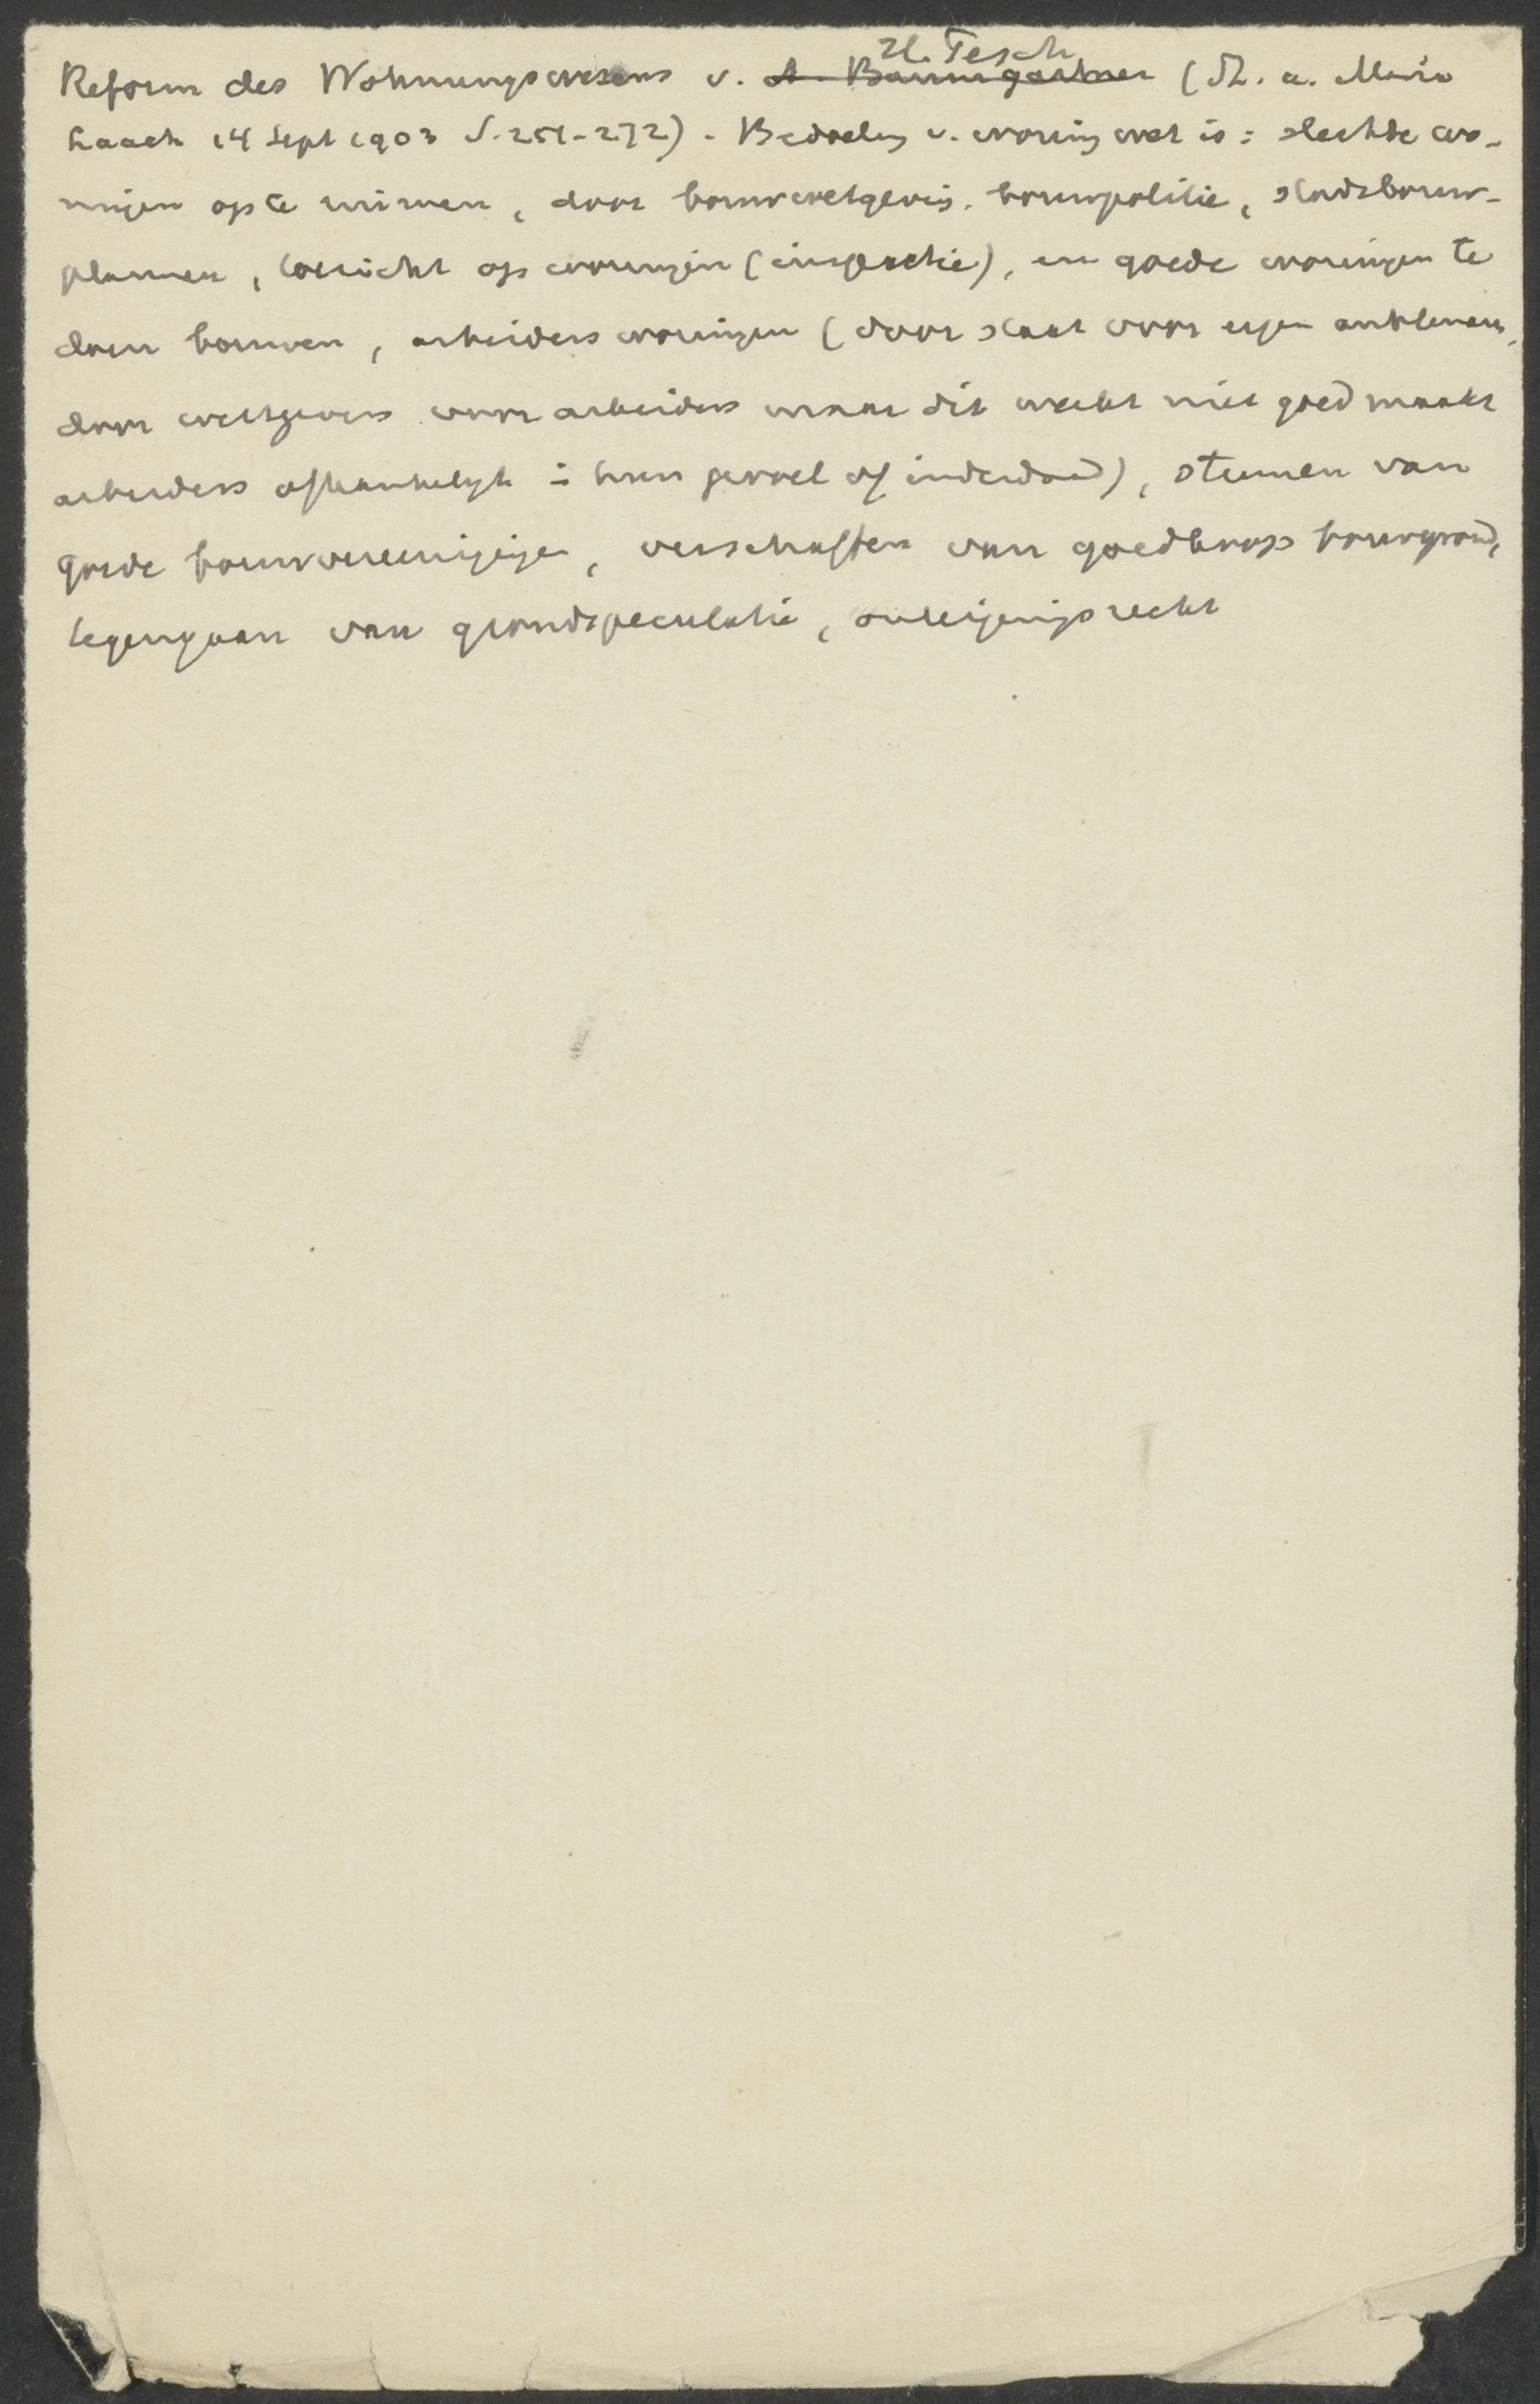 Reform des Wohnungswesens v. A. Baumgartner H. Pesch (St. a. Maria
Laach 14 Sept 1903 S. 251-272). Bedoeling v. woning wet is: slechte wo-
ningen op te ruimen, door bouwwetgeving, bouwpolitie, stadsbouw-
plannen, toezicht op woningen (inspectie), en goede woningen te
doen bouwen, arbeiderswoningen (door staat voor eigen ambtenaren,
door werkgevers voor arbeiders maar dit werkt niet goed maakt
arbeiders afhankelijk in hun gevoel of inderdaad), steunen van
goede bouwvereenigingen, verschaffen van goedkoop bouwgrond,
tegengaan van grondspeculatie, onteigeningsrecht